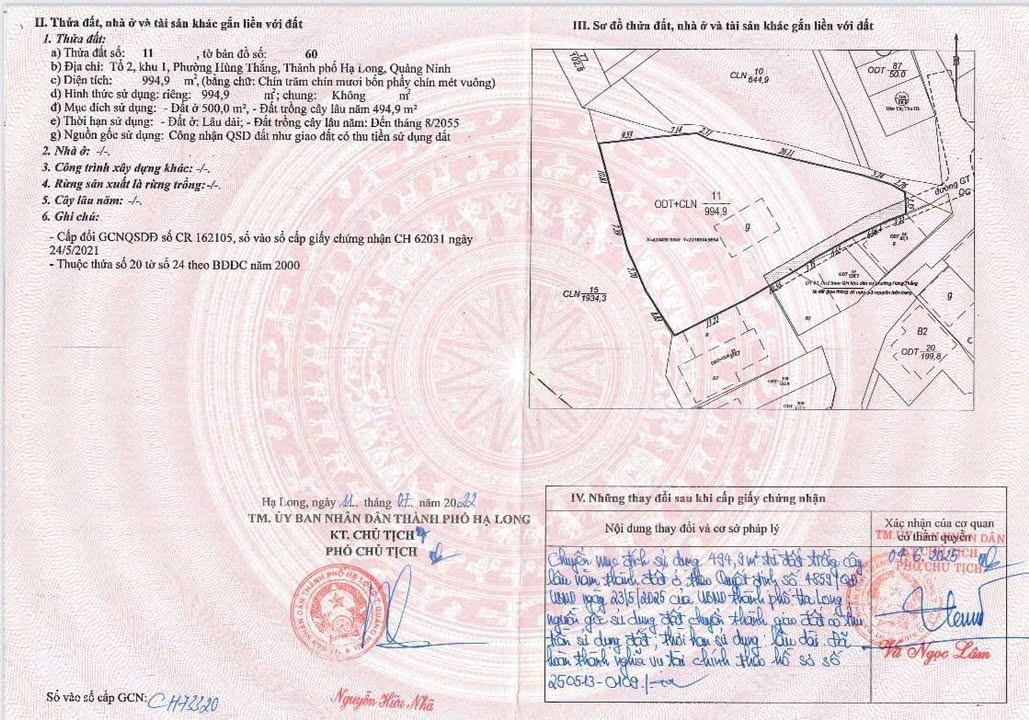 II. Thửa đất, nhà ở và tài sản khác gắn liền với đất
1. Thửa đất:
a) Thửa đất số: 11 , tờ bản đồ số: 60
b) Địa chỉ: Tổ 2, khu 1, Phường Hùng Thắng, Thành phố Hạ Long, Quảng Ninh
c) Diện tích: 994,9 m², (bằng chữ: Chín trăm chín mươi bốn phẩy chín mét vuông)
d) Hình thức sử dụng: riêng: 994,9 m²; chung: Không m²
đ) Mục đích sử dụng: - Đất ở 500,0 m², - Đất trồng cây lâu năm 494,9 m²
e) Thời hạn sử dụng: - Đất ở: Lâu dài; - Đất trồng cây lâu năm: Đến tháng 8/2055
g) Nguồn gốc sử dụng: Công nhận QSD đất như giao đất có thu tiền sử dụng đất
2. Nhà ở: -/-.
3. Công trình xây dựng khác: -/-.
4. Rừng sản xuất là rừng trồng:-/-.
5. Cây lâu năm: -/-.
6. Ghi chú:
- Cấp đổi GCNQSDĐ số CR 162105, số vào sổ cấp giấy chứng nhận CH 62031 ngày
24/5/2021
- Thuộc thửa số 20 tờ số 24 theo BDDC năm 2000
Hạ Long, ngày 11 tháng 07 năm 2022
TM. ỦY BAN NHÂN DÂN THÀNH PHỐ HẠ LONG
KT. CHỦ TỊCH
PHÓ CHỦ TỊCH
Số vào sổ cấp GCN: CH73320
III. Sơ đồ thửa đất, nhà ở và tài sản khác gắn liền với đất
102,8
CLN 10
644,9
ODT 87
50.0
9.53
7.14
2.11
26.11
đường GT
ODT+CLN 11
994,9
9
CLN 15
1934,3
7.70
13.22
9
B2
ODT 20
199,8
IV. Những thay đổi sau khi cấp giấy chứng nhận
Nội dung thay đổi và cơ sở pháp lý
Xác nhận của cơ quan
có thẩm quyền
TM. ỦY BAN NHÂN DÂN
PHÓ CHỦ TỊCH
04.6.2025
Chuyển mục đích sử dụng 494,9 m² từ đất trồng cây
lâu năm thành đất ở theo Quyết định số 4853/QĐ
UBND ngày 23/5/2025 của UBND thành phố Hạ Long
nguồn gốc sử dụng đất chuyển thành giao đất có thu
tiền sử dụng đất, thời hạn sử dụng: lâu dài. Đã
hoàn thành nghĩa vụ tài chính theo hồ sơ số
250513-0109./-
Vũ Ngọc Lâm